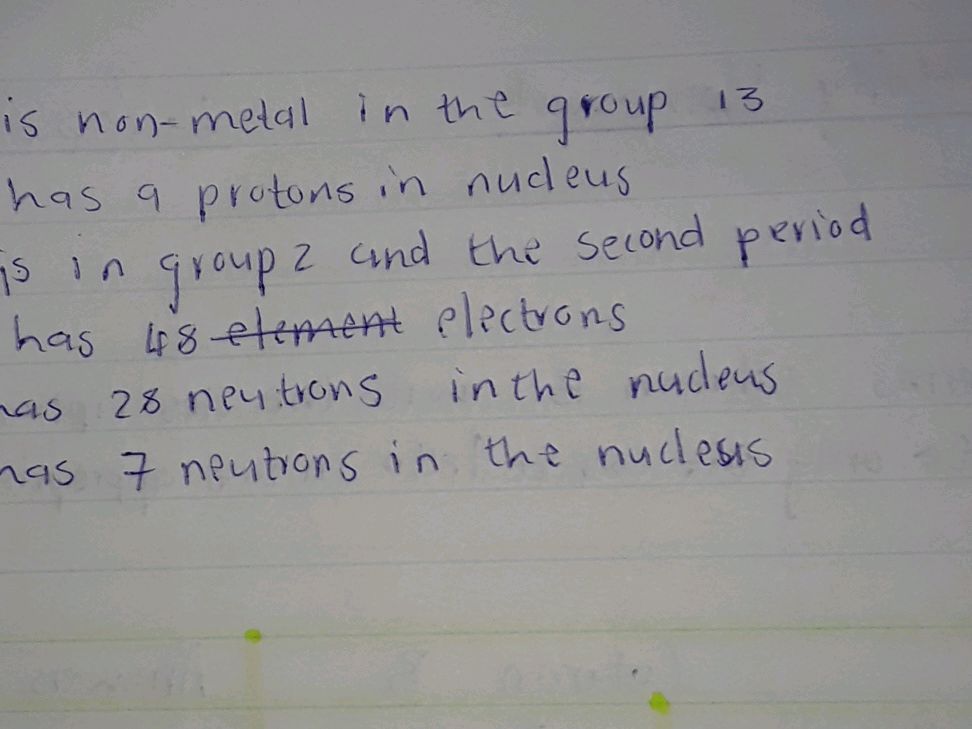 is non-metal in the group 13
has 9 protons in nucleus
is in group 2 and the second period
has 48 element electrons
has 28 neutrons in the nucleus
has 7 neutrons in the nucleus